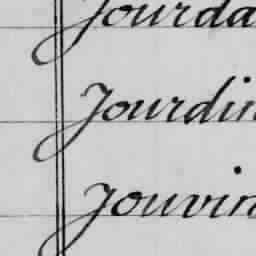 Jourda
Jourdin
Jouvin